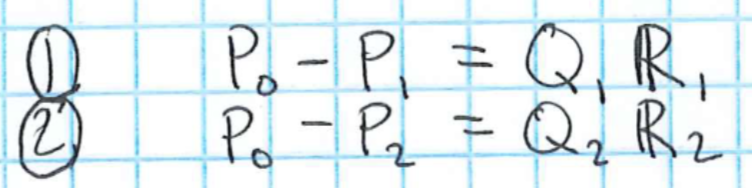 ① P₀ - P₁ = Q₁ R₁
② P₀ - P₂ = Q₂ R₂